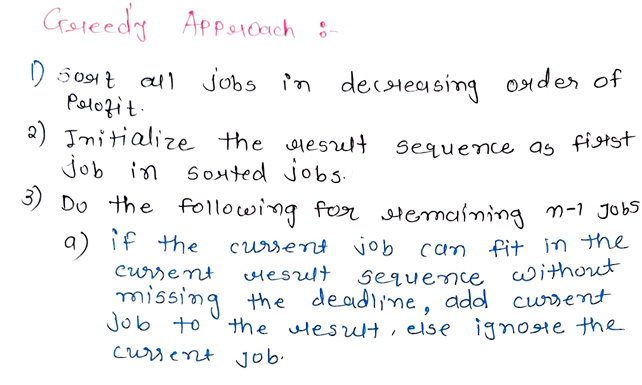 Greedy Approach :-
1) Sort all jobs in decreasing order of
Profit.
2) Initialize the result sequence as first
job in sorted jobs.
3) Do the following for remaining n-1 Jobs
a) if the current job can fit in the
current result sequence without
missing the deadline, add current
Job to the result, else ignore the
current job.